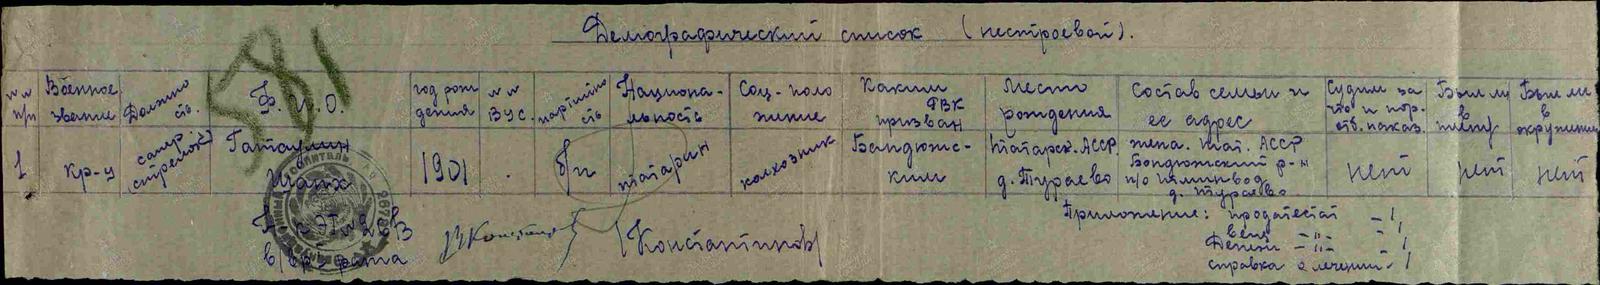 Демографический список (нестроевой).
581
№№ п/п
Военное звание
Должность.
Ф. И. О.
год рождения
№№ ВУС.
партийность
Национальность
Соц-положение
Каким ГВК призван
Место рождения
Состав семьи и ее адрес
Судим за что и пор. отб. наказ.
Был ли в плену
Был ли в окружении
1
Кр-ц
сапер (стрелок)
Гатаулин
Шайх
1901
б/п
татарин
колхозник
Бондюж-
ским
Татарск. АССР
д. Тураево
жена. Тат. АССР
Бондюжский р-н
п/о
д. Тураево
нет
нет
нет
Приложение: продатестат - 1,
вещ - „ - 1
Денеж - „ - 1
справка о лечении - 1
в/вр-2 ранга
/Константинов/